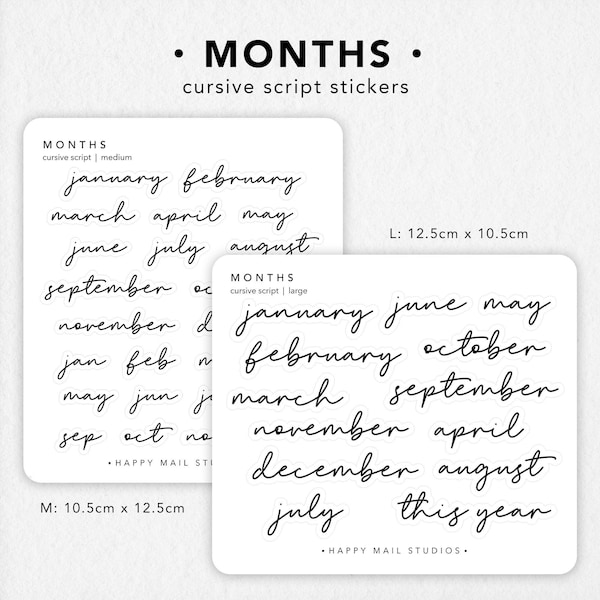 • MONTHS •
cursive script stickers
MONTHS
cursive script | medium
january february
march april may
june july august
september
november
jan feb
may jun
sep oct
•HAPPY MAIL
M: 10.5cm x 12.5cm
L: 12.5cm x 10.5cm
MONTHS
cursive script | large
january june may
february october
march september
november april
december august
july this year
•HAPPY MAIL STUDIOS•